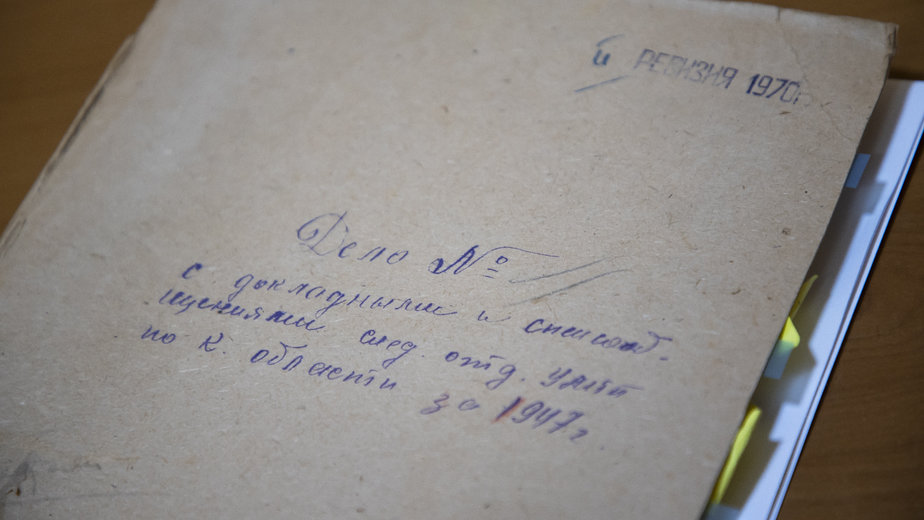 и РЕВИЗИЯ 1970г
Дело №
с докладными и спецсооб-
щениями след. отд. УМГБ
по К. области
за 1947г.